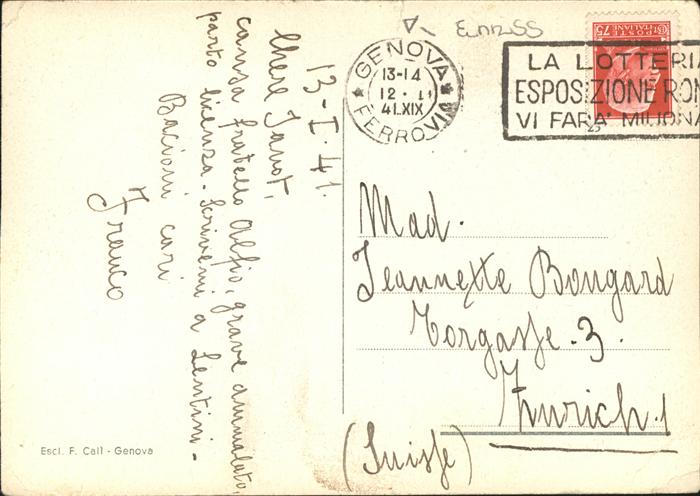 13-I-41.
Chere Janot,
causa fratello Alfio, grave ammalato,
parto licenza. Scrivemi a Lentini.
Bacioni cari
Franco
Escl. F. Call - Genova
GENOVA
13-14
12 · I
41.XIX
FERROVIA
POSTE ITALIANE
75
LA LOTTERIA
ESPOSIZIONE ROM
VI FARA' MILIONA
Mad.
Jeannette Bongard
Torgasse. 3.
Zurich. 1
(Suisse)